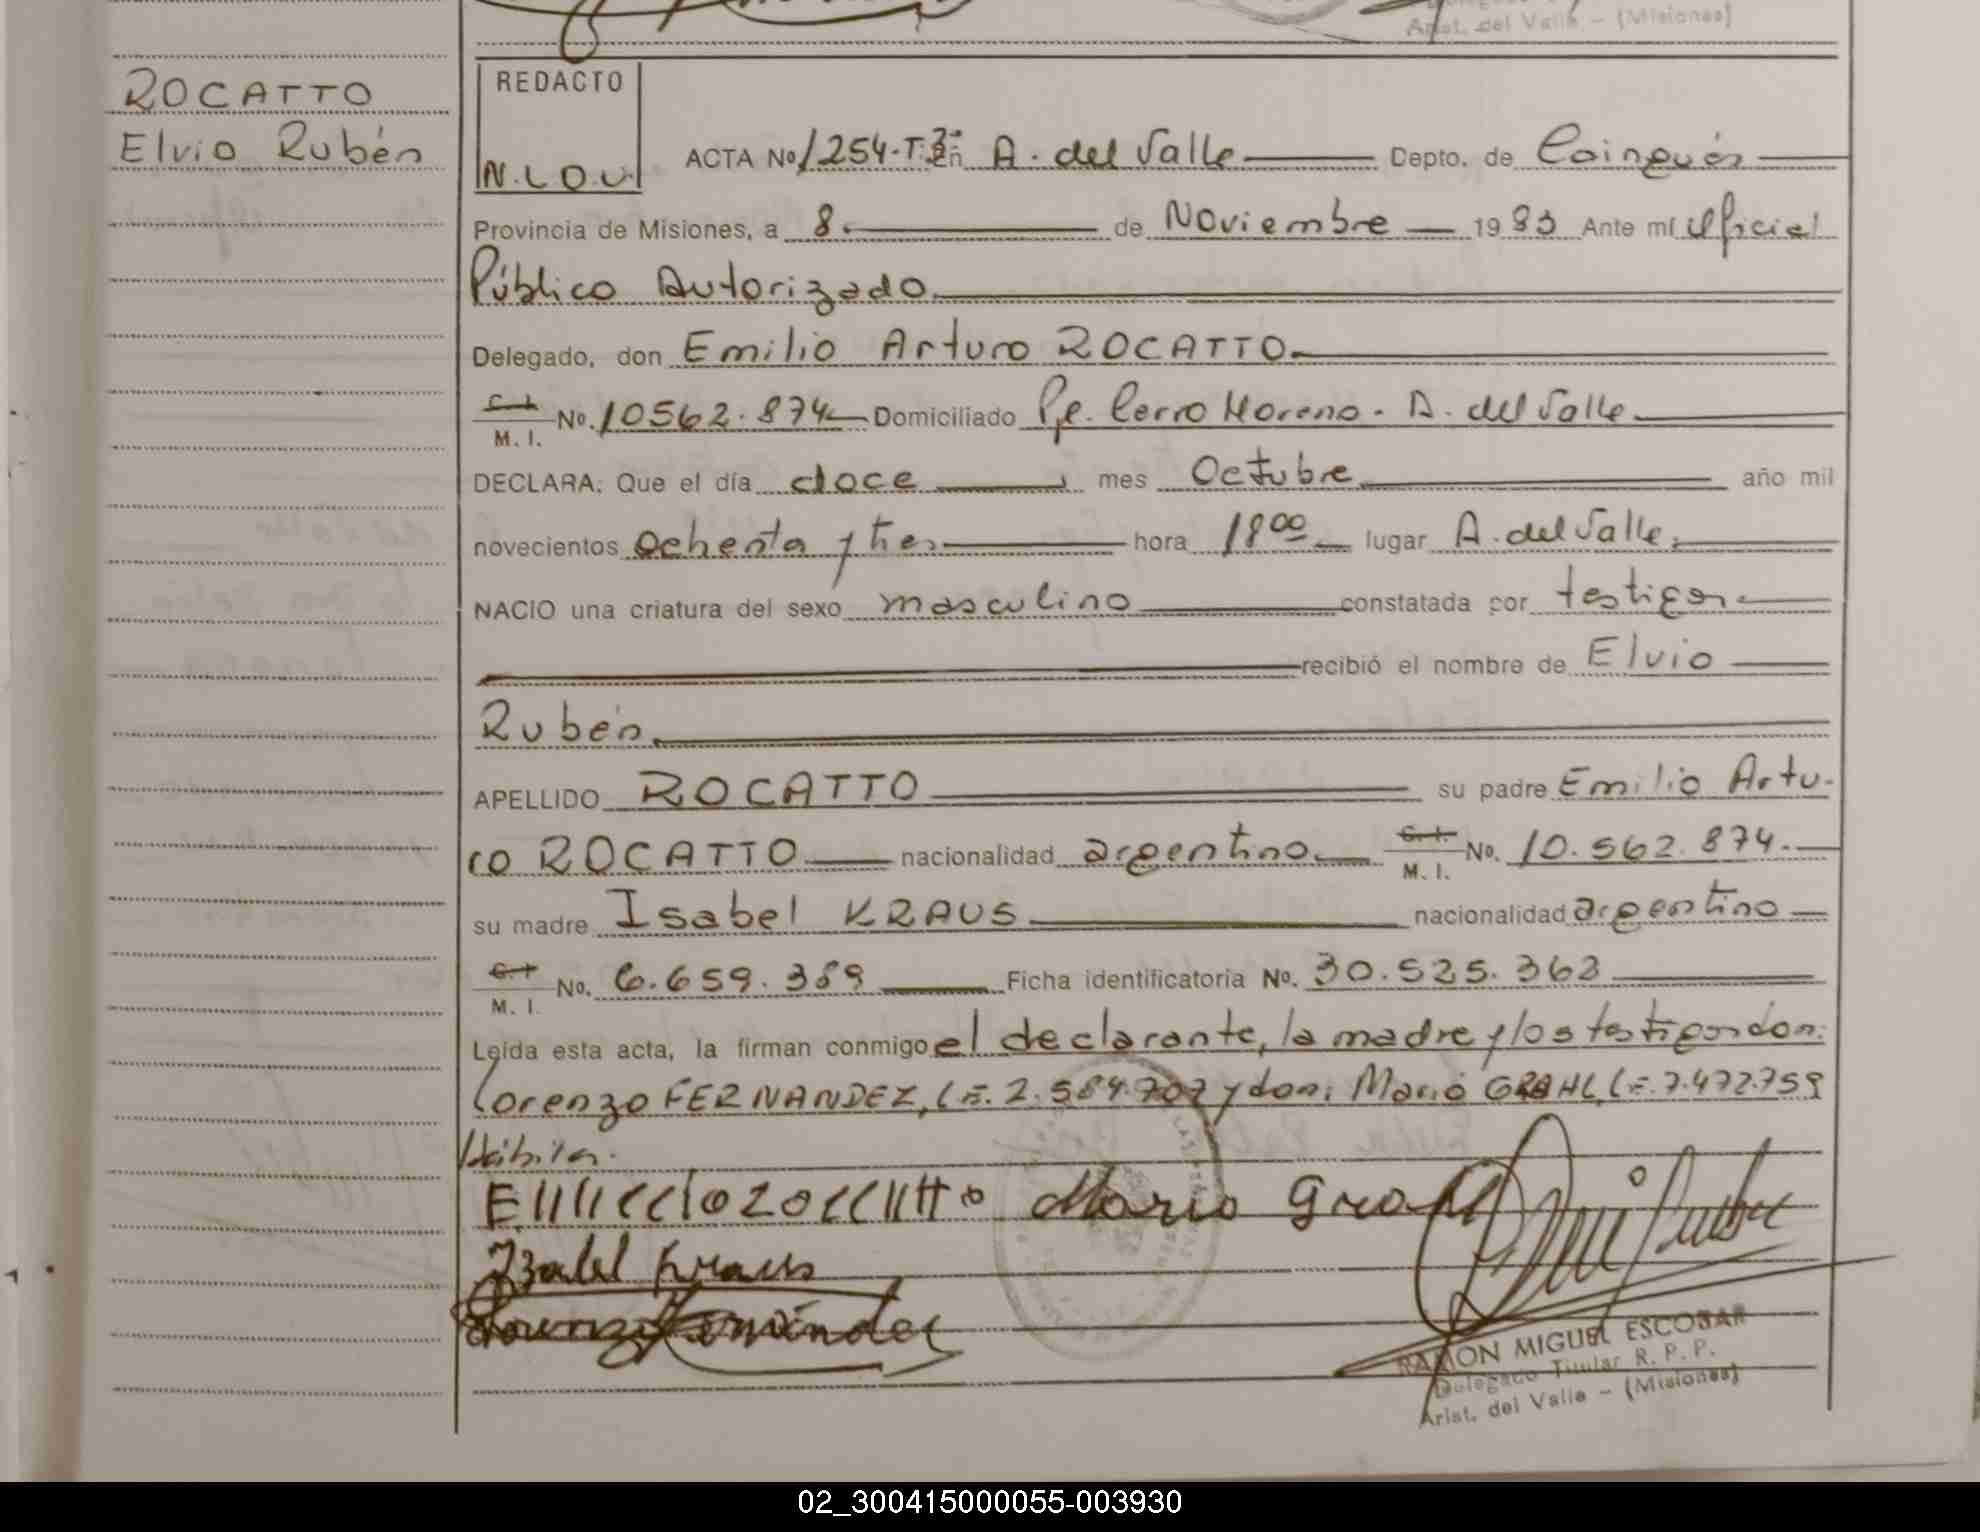 Arist. del Valle - (Misiones)
ROCATTO
Elvio Rubén
REDACTO
N.L.O.U.
ACTA No 1254-T:2º en A. del Valle Depto. de Cainguás
Provincia de Misiones, a 8. de Noviembre 1983 Ante mí Oficial
Público Autorizado
Delegado, don Emilio Arturo ROCATTO
C.I. M.I. No. 10562.874 Domiciliado Pje. Cerro Moreno - A. del Valle
DECLARA: Que el día doce mes Octubre año mil
novecientos ochenta y tres hora 18:00 lugar A. del Valle
NACIO una criatura del sexo masculino constatada por testigos
recibió el nombre de Elvio
Rubén
APELLIDO ROCATTO su padre Emilio Artu-
ro ROCATTO nacionalidad argentino C.I. M.I. No. 10.562.874.
su madre Isabel KRAUS nacionalidad argentino
C.I. M.I. No. 6.659.389 Ficha identificatoria No. 30.525.362
Leída esta acta, la firman conmigo el declarante, la madre y los testigos don:
Lorenzo FERNANDEZ, L.E. 2.584.707 y don: Mario GRAHL L.E. 7.472.759
Hábiles.
Mario Grahl
Izabel Kraus
Lorenzo Fernandez
RAMON MIGUEL ESCOBAR
Delegado Titular R. P. P.
Arist. del Valle - (Misiones)
02_300415000055-003930